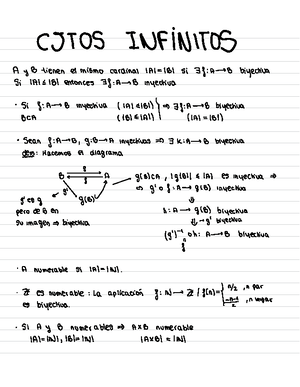 CJTOS INFINITOS
A y B tienen el mismo cardinal |A|=|B| si ∃f:A→B biyectiva
Si |A|≤|B| entonces ∃f:A→B inyectiva
· Si f:A→B inyectiva (|A|≤|B|) ⇒ ∃f:A→B biyectiva
B⊂A (|B|≤|A|) (|A|=|B|)
· Sean f:A→B, g:B→A inyectivas ⇒ ∃k:A→B biyectiva
dem: Hacemos el diagrama
B A g(B)⊂A, |g(B)| ≤ |A| es inyectiva ⇒
f
g
g' g(B) ⇒ g' o f:A→g(B) inyectiva
g' es g
pero de B en h:A→g(B) biyectiva
su imagen ⇒ biyectiva g' biyectiva
(g')⁻¹ o h: A→B biyectiva
· A numerable si |A|=|N|.
· Z es numerable: La aplicación f:N→Z / f(n)= n/2, n par
es biyectiva. , n impar
· Si A y B numerables ⇒ AxB numerable
|A|=|N|, |B|=|N| |AxB| = |N|